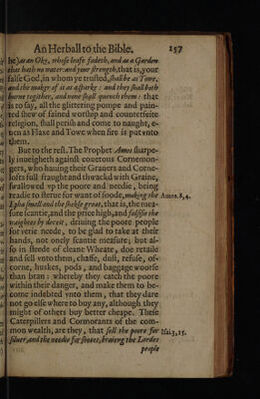 An Herball to the Bible. 157
he) as an Oke, whose leafe fadeth, and as a Garden
that hath no water: and your strength, that is, your
false God, in whom ye trusted, shall be as Towe,
and the maker of it as a sparke: and they shall both
burne together, and none shall quench them: that
is to say, all the glittering pompe and pain-
ted shew of fained worship and counterfeite
religion, shall perish and come to naught, e-
uen as Flaxe and Towe when fire is put vnto
them.
But to the rest. The Prophet Amos sharpe-
ly inueigheth against couetous Cornemon-
gers, who hauing their Graners and Corne-
lofts full fraught and thwackd with Graine,
swallowed vp the poore and needie, being
readie to sterue for want of foode, making the Amos.8,4.
Epha small and the shekle great, that is, the mea-
sure scantie, and the price high, and falsifie the
weightes by deceit, driuing the poore people
for verie neede, to be glad to take at their
hands, not onely scantie measure; but al-
so in steede of cleane Wheate, doe retaile
and sell vnto them, chaffe, dust, refuse, of-
corne, huskes, pods, and baggage woorse
than bran: whereby they catch the poore
within their danger, and make them to be-
come indebted vnto them, that they dare
not go else where to buy any, although they
might of others buy better cheape. These
Caterpillers and Cormorants of the com-
mon wealth, are they, that sell the poore for Isai.3,15.
siluer, and the needie for shooes, braieng the Lordes
people